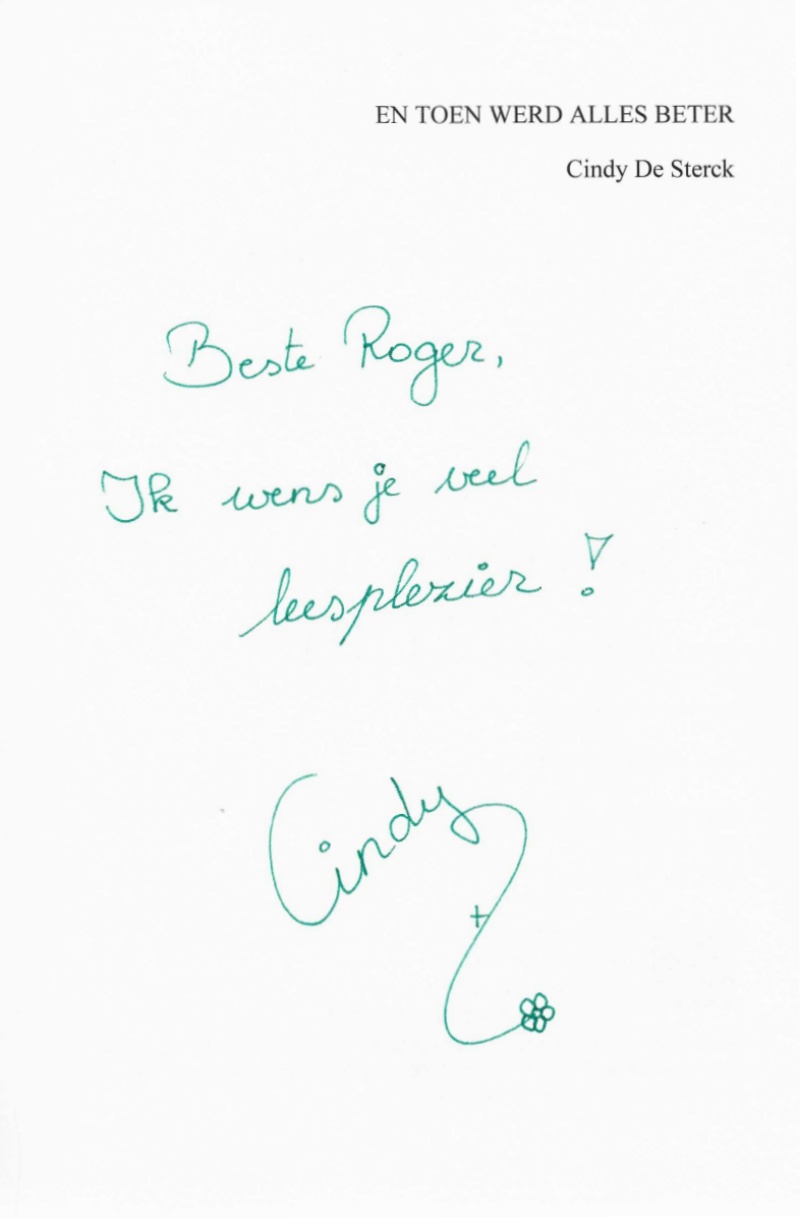 EN TOEN WERD ALLES BETER
Cindy De Sterck
Beste Roger,
Ik wens je veel
leesplezier !
Cindy